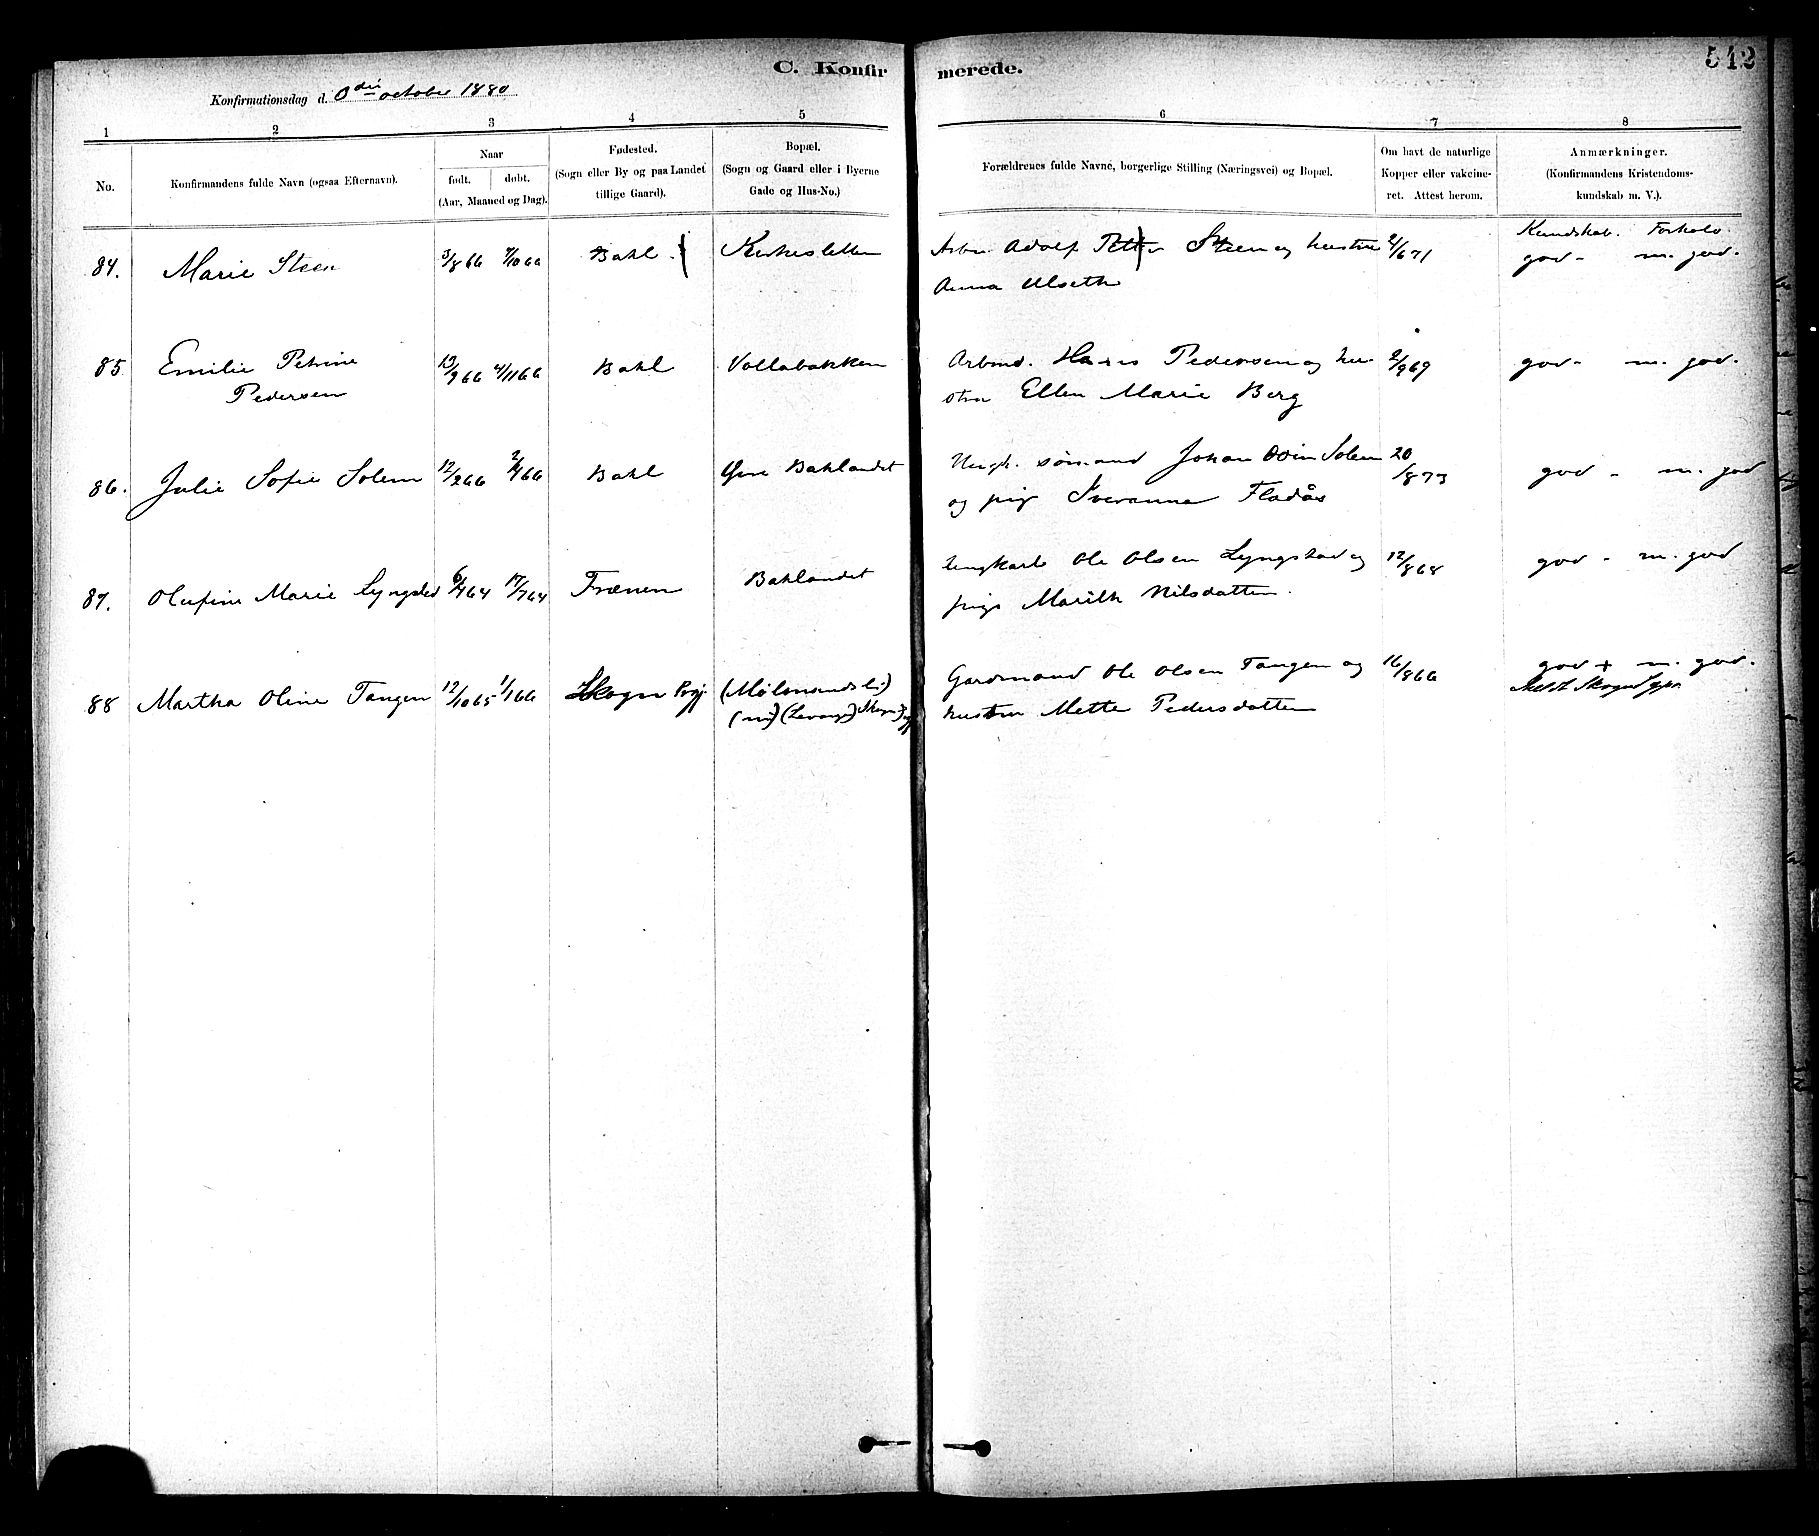 C. Konfirmerede.
542
Konfirmationsdag d. october 1880
1 2 3 4 5 6 7 8
No.
Konfirmandens fulde Navn (ogsaa Efternavn).
Naar
født. døbt.
(Aar, Maaned og Dag).
Fødested.
(Sogn eller By og paa Landet
tillige Gaard).
Bopæl.
(Sogn og Gaard eller i Byerne
Gade og Hus-No.)
Forældrenes fulde Navne, borgerlige Stilling (Næringsvei) og Bopæl.
Om havt de naturlige
Kopper eller vakcine-
ret. Attest herom.
Anmærkninger.
(Konfirmandens Kristendoms-
kundskab m. V.).
Kundskab. Forhold.
84. Marie Steen 3/8 66 7/10 66 Bakl. Kirkesletten Arbm. Adolf Petter Steen og hustru 2/6 71 god - m. god.
Anna Ulseth
85 Emilie Petrine 13/9 66 4/11 66 Bakl Vollabakken Arbmd. Hans Pedersen og hu- 2/9 69 god - m. god.
Pedersen stru Ellen Marie Berg
86. Julie Sofie Solem 12/2 66 2/4 66 Bakl Øvre Baklandet Ungk. sømand Johan Odin Solem 20/8 73 god - m. god
og pige Iveranna Fladås
87. Olufine Marie Lyngstad 6/4 64 17/7 64 Frænen Baklandet Ungkarl Ole Olsen Lyngstad og 12/8 68 god - m. god
pige Marith Nilsdatter.
88 Martha Oline Tangen 12/10 65 1/1 66 Skogn Prgj. (Mølmandsli) Gardmand Ole Olsen Tangen og 16/8 66 god + m. god.
(Levanger) Skogn hustru Mette Pedersdatter Skogns